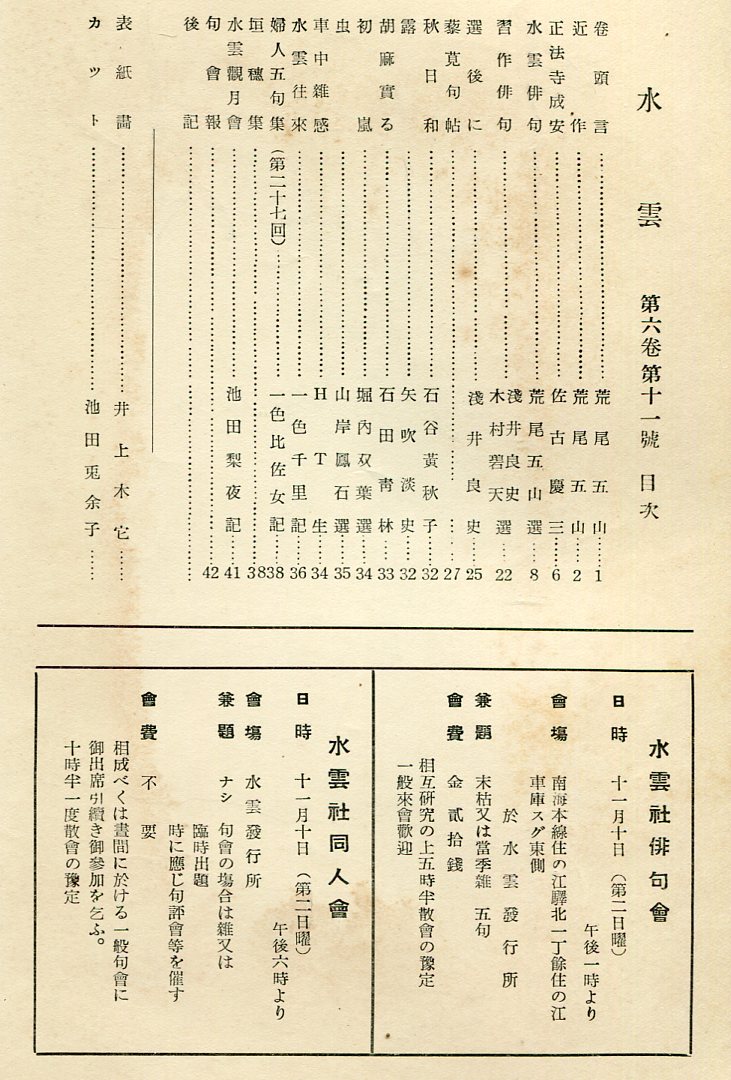 水雲 第六卷第十一號 目次
卷頭言……荒尾五山……1
近作……荒尾五山……2
正法寺成安……佐古慶三……6
水雲俳句……荒尾五山選……8
習作俳句……淺井良史 木村碧天選……22
選後に……淺井良史……25
藜莧句帖……27
秋日和……石谷黃秋子……32
露……矢吹淡史……32
胡麻實る……石田靑林……33
初嵐……堀內双葉選……34
虫……山岸鳳石選……35
車中雜感……HT生……34
水雲往來……一色千里記……36
婦人五句集(第二十七回)……一色比佐女記……38
垣穗集……38
水雲觀月會……池田梨夜記……41
句會報……42
後記……
表紙畵……井上木它……
カット……池田兎余子……
水雲社俳句會
日時 十一月十日(第二日曜)
午後一時より
會塲 南海本線住の江驛北一丁餘住の江
車庫スグ東側
於水雲發行所
兼題 末枯又は當季雜 五句
會費 金貳拾錢
相互硏究の上五時半散會の豫定
一般來會歡迎
水雲社同人會
日時 十一月十日(第二日曜)
午後六時より
會塲 水雲發行所
兼題 ナシ 句會の塲合は雜又は
臨時出題
時に應じ句評會等を催す
會費 不要
相成べくは晝間に於ける一般句會に
御出席引續き御參加を乞ふ。
十時半一度散會の豫定